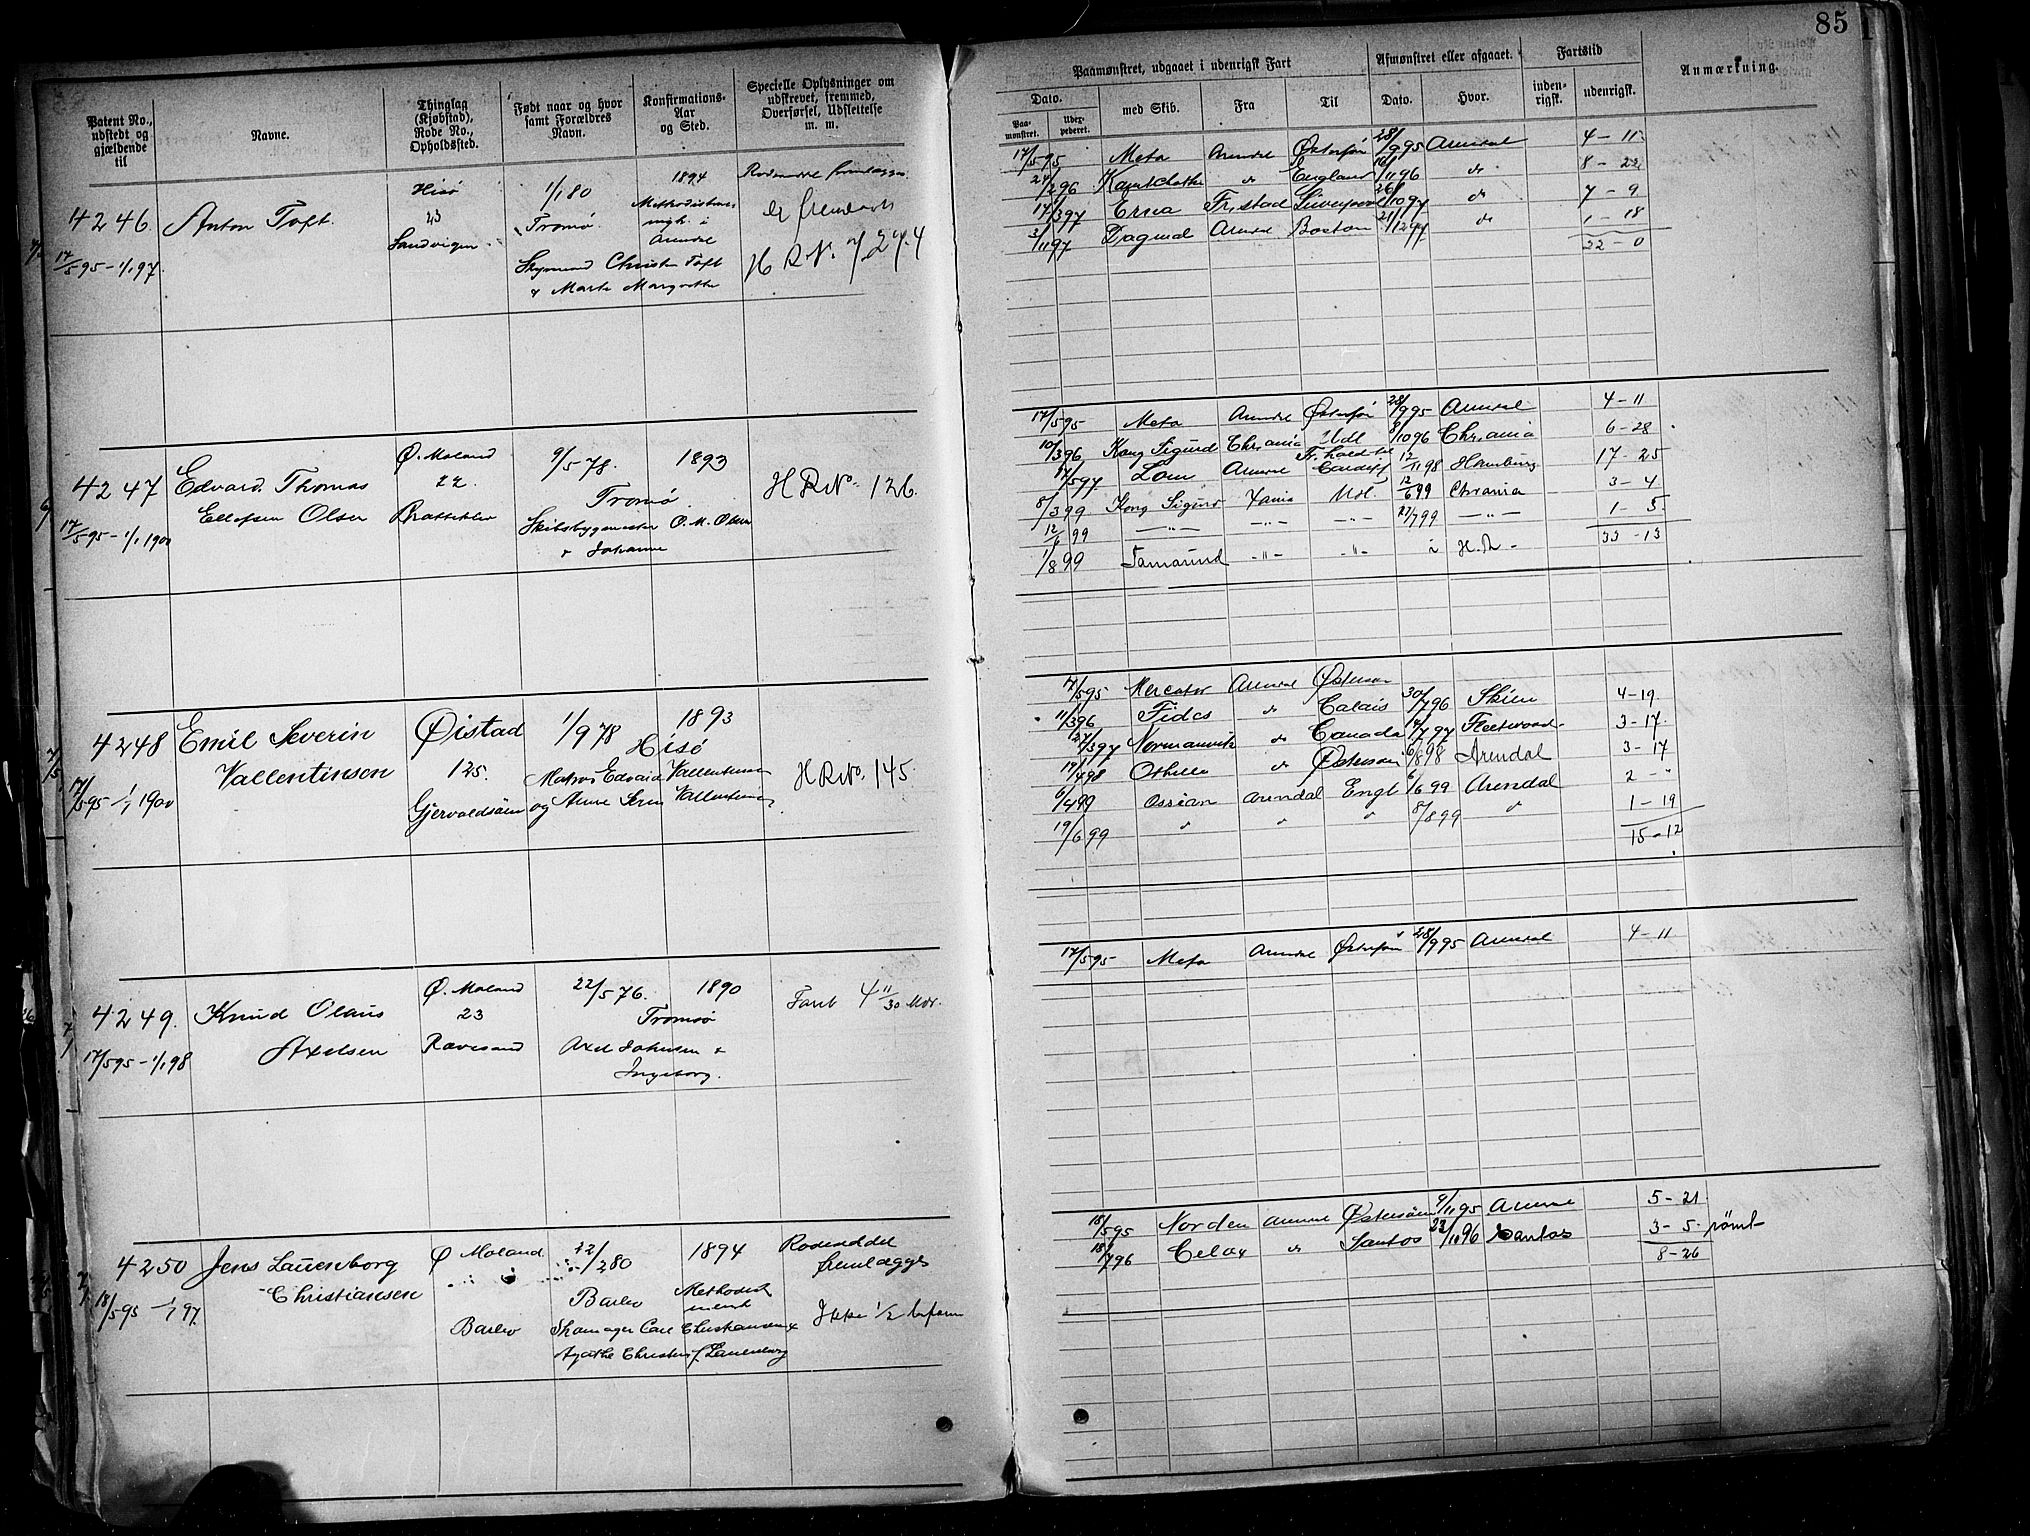 85
Patent No., udstedt og gjældende til
Navne.
Thinglag (Kjøbstad), Rode No., Opholdssted.
Født naar og hvor samt Forældres Navn.
Konfirmations-Aar og Sted.
Specielle Oplysninger om udskrevet, fremmed, Overførsel, Udslettelse m. m.
Paamønstret, udgaaet i udenrigsk Fart
Afmønstret eller afgaaet.
Fartstid
Anmærkning.
Dato.
Paa-mønstret.
Udex-pederet.
med Skib.
Fra
Til
Dato.
Hvor.
inden-rigsk.
udenrigsk.
4246.
17/5 95 - 1/1 97.
Anton Toft.
Hisø
23
Sandvigen
1/1 80
Tromø.
1894
Arendal
Christen Toft
& Marte
H R No. 7274
17/5 95 Meta Arendal Østersøen 28/9 95 Arendal 4-11
24/2 96 do England 16/11 96 do 8-22
17/3 97 Erna Fr.stad Liverpool 26/10 97 do 7-9
3/11 97 Dagmd Arendal Boston 21/12 97 do 1-18
22-0
4247
17/5 95 - 1/1 1900
Edvard Thomas
Ellefsen Olsen
Ø. Moland
22.
Bratteklev
9/5 78.
1893
Tromø
Skibsbygmester O. M. Olsen
& Johanne
H R No. 126.
17/5 95 Meta Arendal Østersøen 28/9 95 Arendal 4-11
10/3 96 Kong Sigurd Chr.ania Udl 8/10 96 Chr.ania 6-28
17/5 97 Lom Arendal Cardiff 12/11 98 Hamburg 17-25
8/3 99 Kong Sigurd Xania Udl. 12/6 99 Chrania 3-4
12/6 99 -"- -"- -"- 27/7 99 -"- 1-5
1/8 99 Tamarind -"- -"- i H.R. 33-13
4248
17/5 95 - 1/1 1900
Emil Severin
Vallentinsen
Øistad
125.
Gjervoldsøen
1/9 78
1893
Hisø
Matros Edvard Vallentinsen
og Anne Vallentinsen
H R No. 145.
17/5 95 Mercator Arendal Østersøen
11/3 96 Fides do Calais 30/7 96 Skien 4-19
27/3 97 Normanvik do Canada 14/7 97 Fleetwood 3-17.
19/4 98 Othello do Østersøen 6/8 98 Arendal 3-17
6/4 99 Ossian Arendal Engl 6/6 99 Arendal 2 - "
19/6 99 " " " 8/8 99 " 1-19
15-12
4249.
17/5 95 - 1/1 98
Knud Olaus
Axelsen
Ø. Moland
23
Ravesand
22/5 76.
1890
Tromsø
Axel Johnsen &
Ingeborg.
Faret 4 11/30 Mdr.
17/5 95 Meta Arendal Østersøen 28/9 95 Arendal 4-11
4250
18/5 95 - 1/1 97.
Jens Lauenborg
Christiansen
Ø Moland
Barbo
12/2 80
Barbo
1894
Methodist
menh
Carl Christiansen &
Agathe Christens f. Lauenborg
Rodeseddel
fremlægges
Ikke 1/2 befaren
18/5 95 Norden Arendal Østersøen 9/11 95 Arendal 5-21
18/7 96 Celox do Santos 23/10 96 Santos 3-5. rømt
8-26